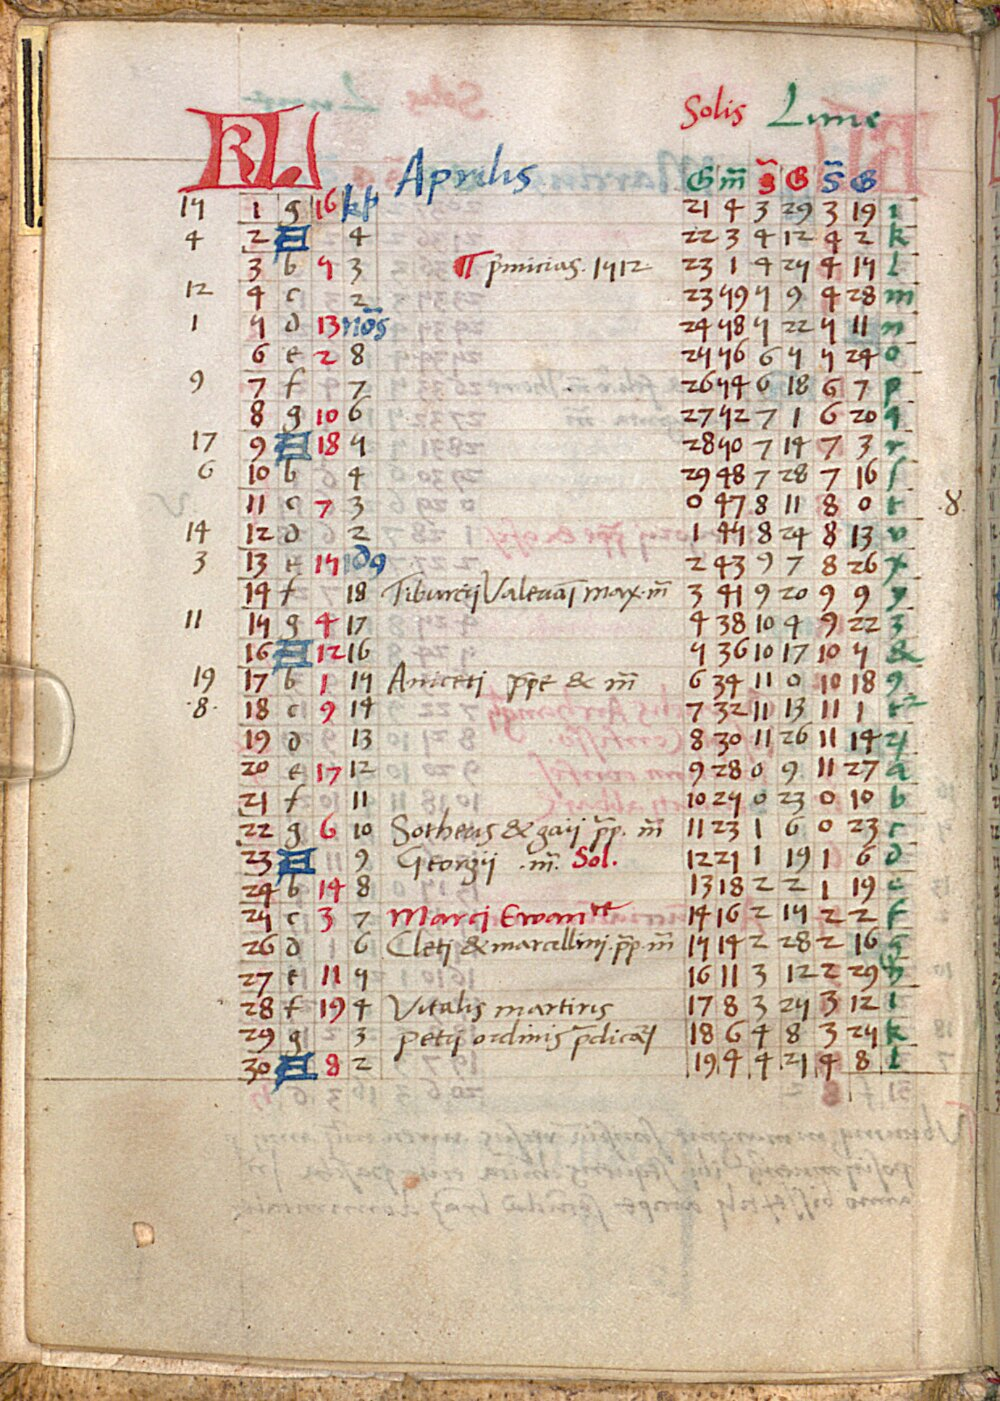 Solis Lune
KL Aprilis G m̃ s̃ G s̃ G
15 1 g 16 kł 21 4 3 29 3 19 i
4 2 A 4 22 3 4 12 4 2 k
3 b 5 3 p̄micias. 1512 23 1 4 25 4 15 l
12 4 c 2 23 59 5 9 4 28 m
1 5 d 13 nōs 24 58 5 22 5 11 n
6 e 2 8 25 56 6 5 5 24 o
9 7 f 7 26 54 6 18 6 7 p
8 g 10 6 27 52 7 1 6 20 q
17 9 A 18 5 28 50 7 15 7 3 r
6 10 b 4 29 48 7 28 7 16 ſ
11 c 7 3 0 47 8 11 8 0 t .8.
14 12 d 2 1 45 8 24 8 13 v
3 13 e 15 Id9 2 43 9 7 8 26 x
14 f 18 Tiburcij Valeriāj max. m̄ 3 41 9 20 9 9 y
11 15 g 4 17 4 38 10 4 9 22 z
16 A 12 16 5 36 10 17 10 5 &
19 17 b 1 15 Aniceti p̄pe & m̄ 6 34 11 0 10 18 9
.8. 18 c 9 14 7 32 11 13 11 1
19 d 13 8 30 11 26 11 14
20 e 17 12 9 28 0 9 11 27 a
21 f 11 10 25 0 23 0 10 b
22 g 6 10 Sotheris & gaij p̄p. m̄ 11 23 1 6 0 23 c
23 A 9 Georgij .m̄. Sol. 12 21 1 19 1 6 d
24 b 14 8 13 18 2 2 1 19 e
25 c 3 7 Marcj Ewan^te 14 16 2 15 2 2 f
26 d 6 Cletj & marcellinj. p̄p. m̄ 15 14 2 28 2 16 g
27 e 11 5 16 11 3 12 2 29 h
28 f 19 4 Vitalis martiris 17 8 3 25 3 12 i
29 g 3 petrj ordinis p̄dicaꝝ 18 6 4 8 3 25 k
30 A 8 2 19 4 4 21 4 8 l